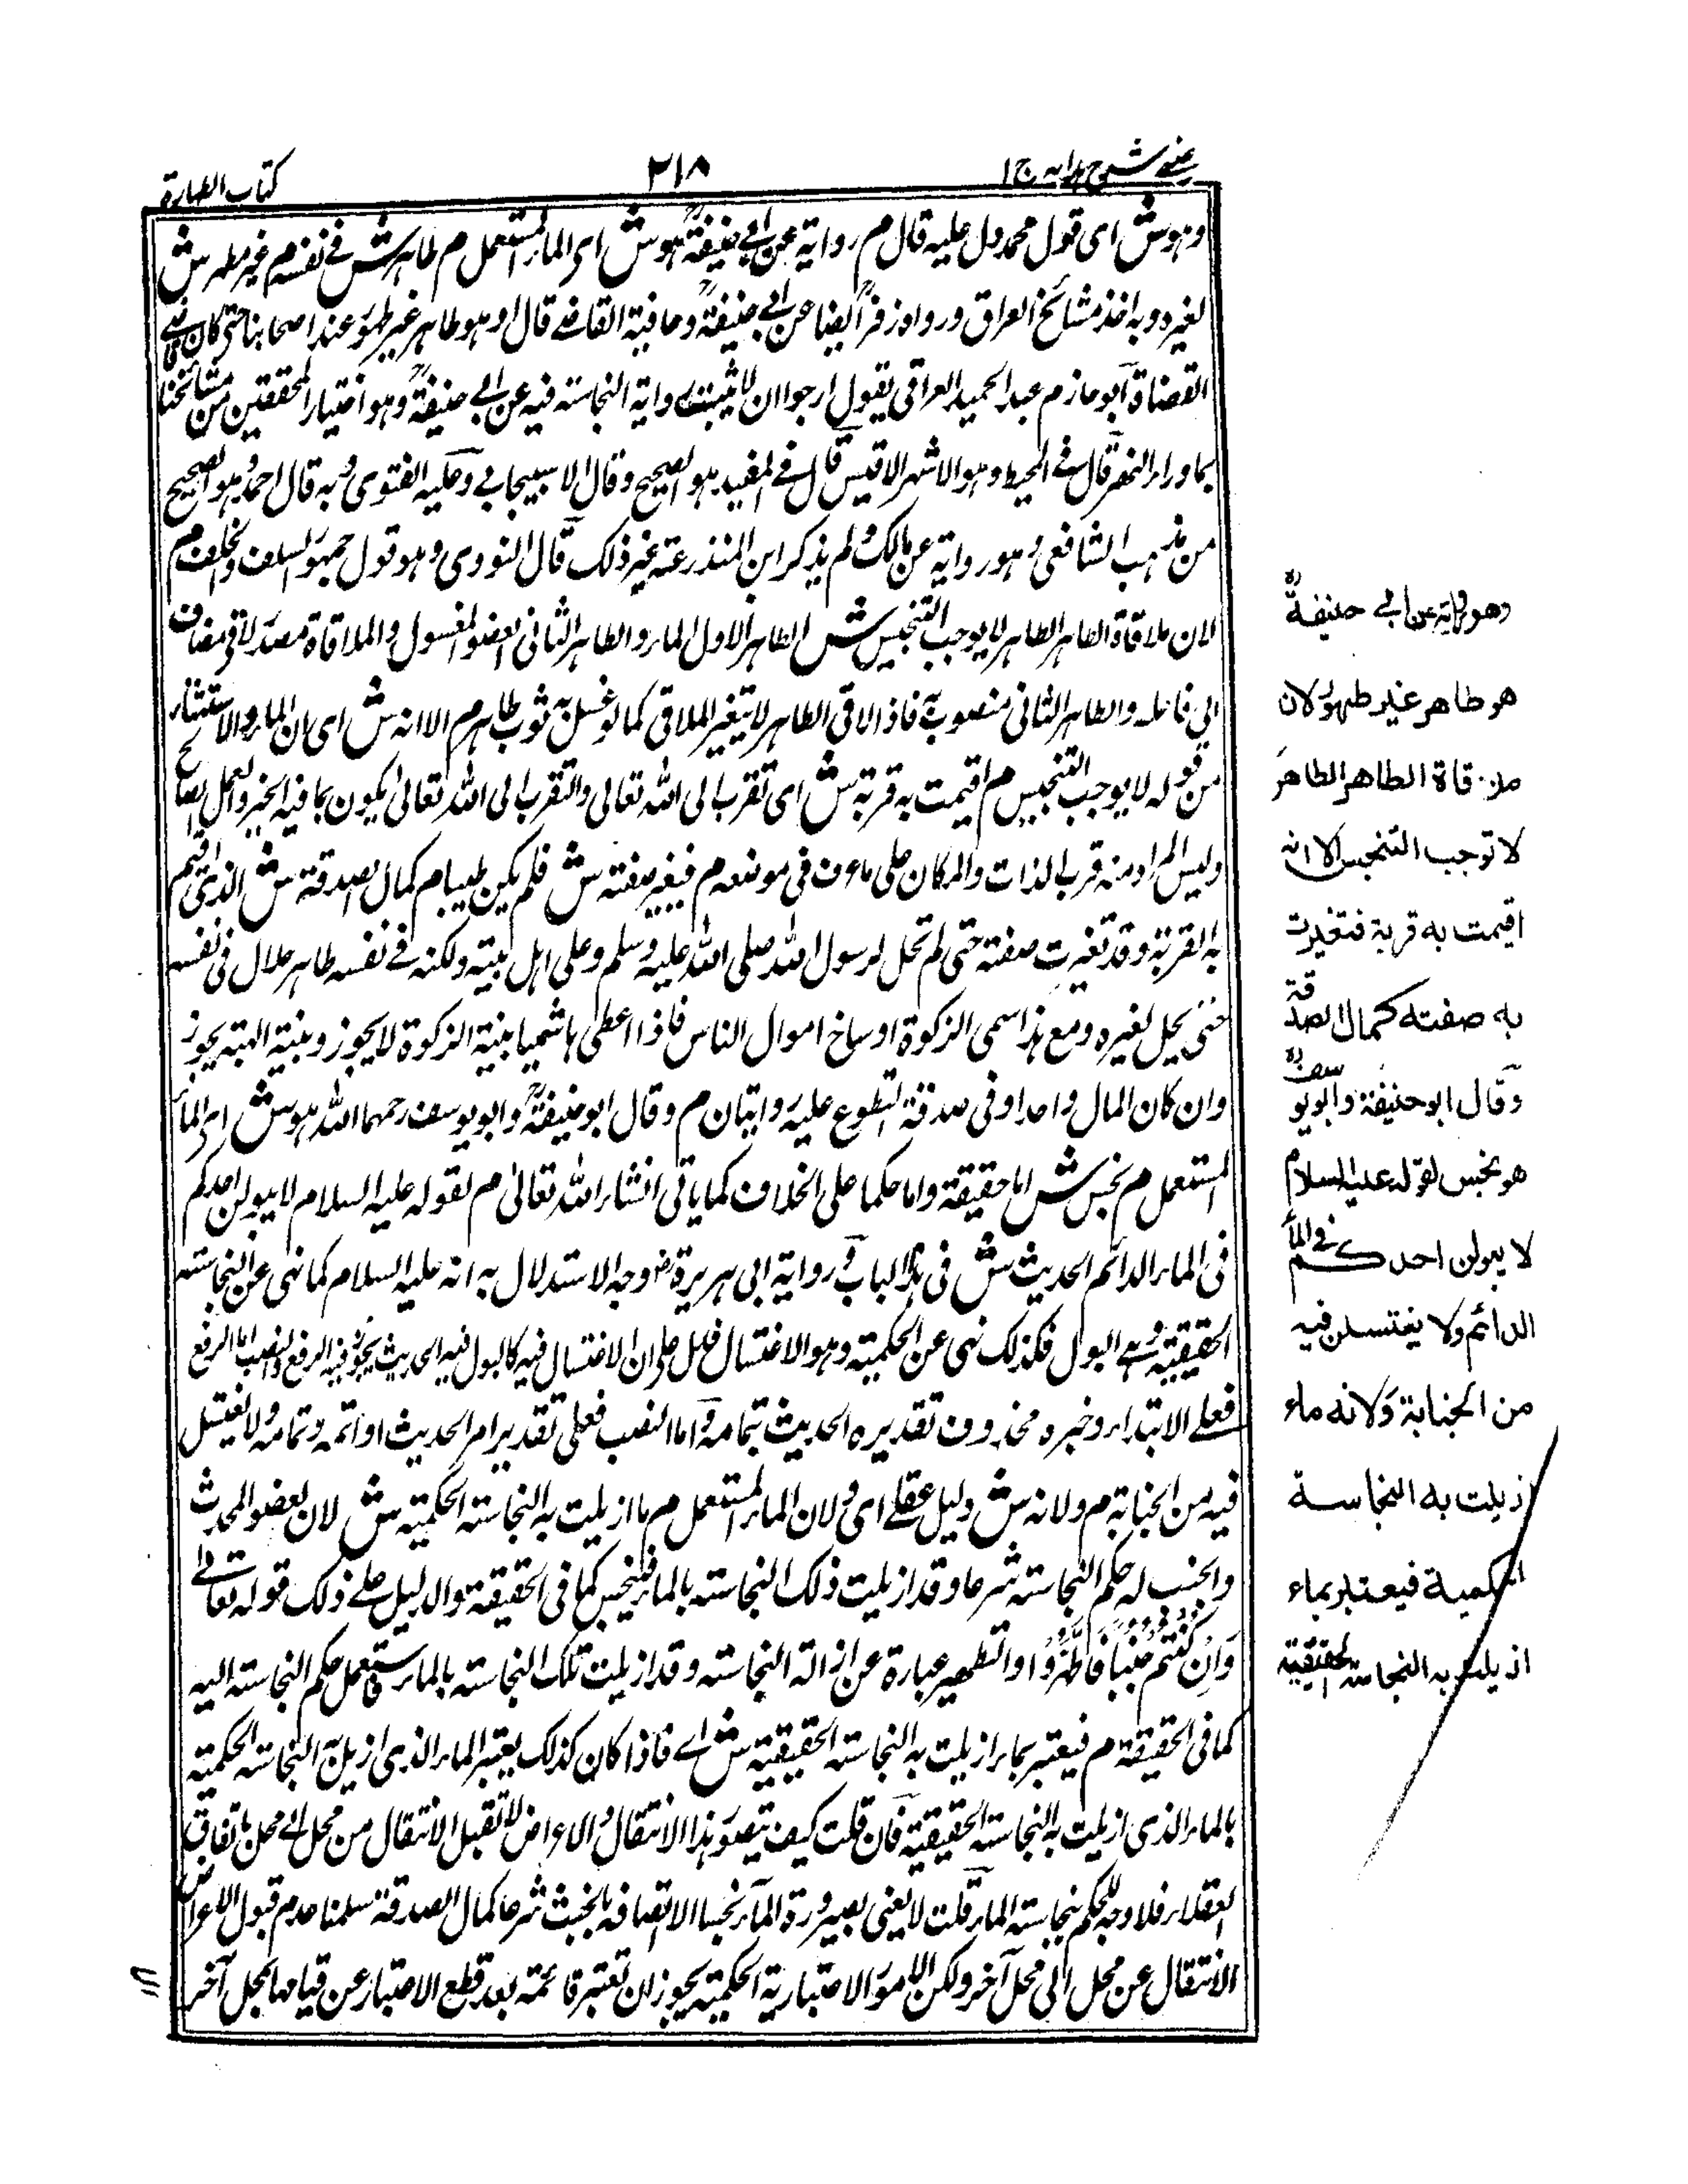 عيني شرح هداية ج ١
٢١٨
كتاب الطهارة
وهو ش اى قول محمد دل عليه قال م رواية عن ابي حنيفة هو ش اى الماء المستعمل م طاهر ش في نفسه م غير مطهر ش
لغيره وبه اخذ مشائخ العراق ورواه زفر ايضا عن ابي حنيفة وعافية القاضي قال او هو طاهر غير طهور عند اصحابنا حتى كان قاضي
القضاة ابو حازم عبد الحميد العراقي يقول ارجو ان لا يثبت رواية النجاسة فيه عن ابي حنيفة وهو اختيار المحققين من مشائخنا
بما وراء النهر قال في المحيط وهو الاشهر الاقيس قال في المفيد هو الصحيح وقال الاسبيجابي وعليه الفتوى وبه قال احمد وهو الصحيح
من مذهب الشافعي وهو رواية عن مالك ولم يذكر ابن المنذر عنه غير ذلك قال النووى وهو قول جمهور السلف والخلف م
لان ملاقاة الطاهر الطاهر لا يوجب التنجيس ش الطاهر الاول الماء والطاهر الثاني العضو المغسول والملاقاة مصدر لاقى مضاف
الى فاعله والطاهر الثاني منصوب به فاذا لاقى الطاهر لا يتغير الملاقى كما لو غسل به ثوب طاهر م الا انه ش اى ان الماء والاستثناء
من قوله لا يوجب التنجيس م اقيمت به قربة ش اى تقرب الى الله تعالى والتقرب الى الله تعالى يكون بما فيه الخير والعمل الصالح
وليس المراد منه قرب الذات والمكان على ما عرف في موضعه م فيغير صفته ش فلم يكن طيبا م كمال الصدقة ش الذى اقيم
به القربة وقد تغيرت صفته حتى لم تحل لرسول الله صلى الله عليه وسلم وعلى اهل بيته ولكنه في نفسه طاهر حلال في نفسه
حتى يحل لغيره ومع هذا سمى الزكوة اوساخ اموال الناس فاذا اعطى هاشميا بنية الزكوة لا يجوز وبنية الهبة يجوز
وان كان المال واحدا وفي صدقة التطوع عليه روايتان م وقال ابو حنيفة وابو يوسف رحمهما الله هو ش اى الماء
المستعمل م نجس ش اما حقيقة واما حكما على الخلاف كما ياتي انشاء الله تعالى م لقوله عليه السلام لا يبولن احدكم
في الماء الدائم الحديث ش في هذا الباب في رواية ابي هريرة رض وجه الاستدلال به انه عليه السلام كما نهى عن النجاسة
الحقيقية وهي البول فكذلك نهى عن الحكمية وهو الاغتسال فدل على ان الاغتسال فيه كالبول فيه الحديث يجوز فيه الرفع والنصب اما الرفع
فعلى الابتداء وخبره محذوف تقديره الحديث بتمامه واما النصب فعلى تقدير اقرأ الحديث او اتمه وتمامه ولا يغتسل
فيه من الجنابة م ولانه ش دليل عقلي اى ولان الماء المستعمل م ماء ازيلت به النجاسة الحكمية ش لان لعضو المحدث
والجنب له حكم النجاسة شرعا وقد ازيلت ذلك النجاسة بالماء فينجس كما في الحقيقة والدليل على ذلك قوله تعالى
وَاِنْ كُنْتُمْ جُنُبًا فَاطَّهَّرُوْا والتطهير عبارة عن ازالة النجاسة وقد ازيلت تلك النجاسة بالماء حكم النجاسة اليه
كما في الحقيقة م فيعتبر بماء ازيلت به النجاسة الحقيقية ش اى فاذا كان كذلك يعتبر الماء الذى ازيل به النجاسة الحكمية
بالماء الذى ازيلت به النجاسة الحقيقية فان قلت كيف يتصور هذا الانتقال والاعراض لا تقبل الانتقال من محل الى محل باتفاق
العقلاء فلا وجه للحكم بنجاسة الماء قلت لا يعنى بصيرورة الماء نجسا الا اتصافه بالخبث شرعا كمال الصدقة سلمنا عدم قبول الاعراض
الانتقال عن محل الى محل آخر ولكن الامور الاعتبارية الحكمية يجوز ان تعتبر قائمة بعد قطع الاعتبار عن قيامها بمحل آخر
وهو رواية عن ابي حنيفة رح
هو طاهر غير طهور لان
ملاقاة الطاهر الطاهر
لا توجب التنجيس الا انه
اقيمت به قربة فتغيرت
به صفته كمال الصدقة
وقال ابو حنيفة وابو يوسف رح
هو نجس لقوله عليه السلام
لا يبولن احدكم في الماء
الدائم ولا يغتسلن فيه
من الجنابة ولانه ماء
ازيلت به النجاسة
الحكمية فيعتبر بماء
ازيلت به النجاسة الحقيقية